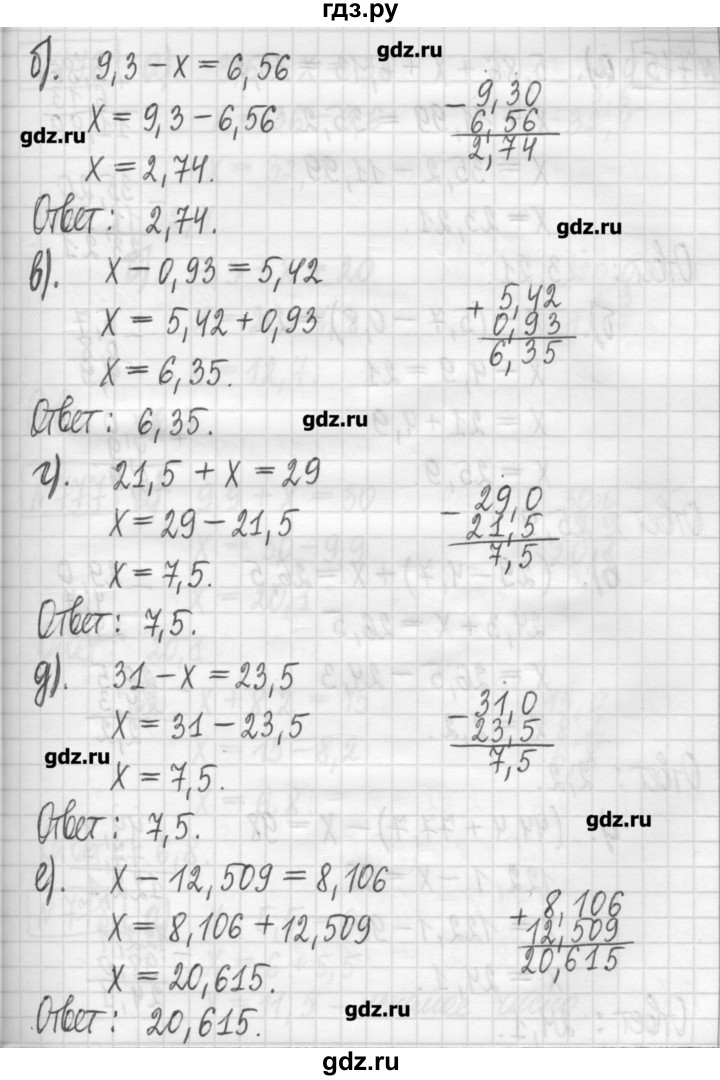 гдз.ру
б). 9,3 – x = 6,56
gdz.ru
– 9,30
x = 9,3 – 6,56
6,56
gdz.ru
2,74
x = 2,74.
Ответ: 2,74.
gdz.ru
в). x – 0,93 = 5,42
+ 5,42
x = 5,42 + 0,93
0,93
6,35
x = 6,35.
Ответ: 6,35.
gdz.ru
г). 21,5 + x = 29
– 29,0
x = 29 – 21,5
21,5
7,5
x = 7,5.
Ответ: 7,5.
д). 31 – x = 23,5
– 31,0
x = 31 – 23,5
23,5
gdz.ru
7,5
x = 7,5.
Ответ: 7,5.
gdz.ru
е). x – 12,509 = 8,106
+ 8,106
x = 8,106 + 12,509
12,509
20,615
x = 20,615.
gdz.ru
Ответ: 20,615.
gdz.ru